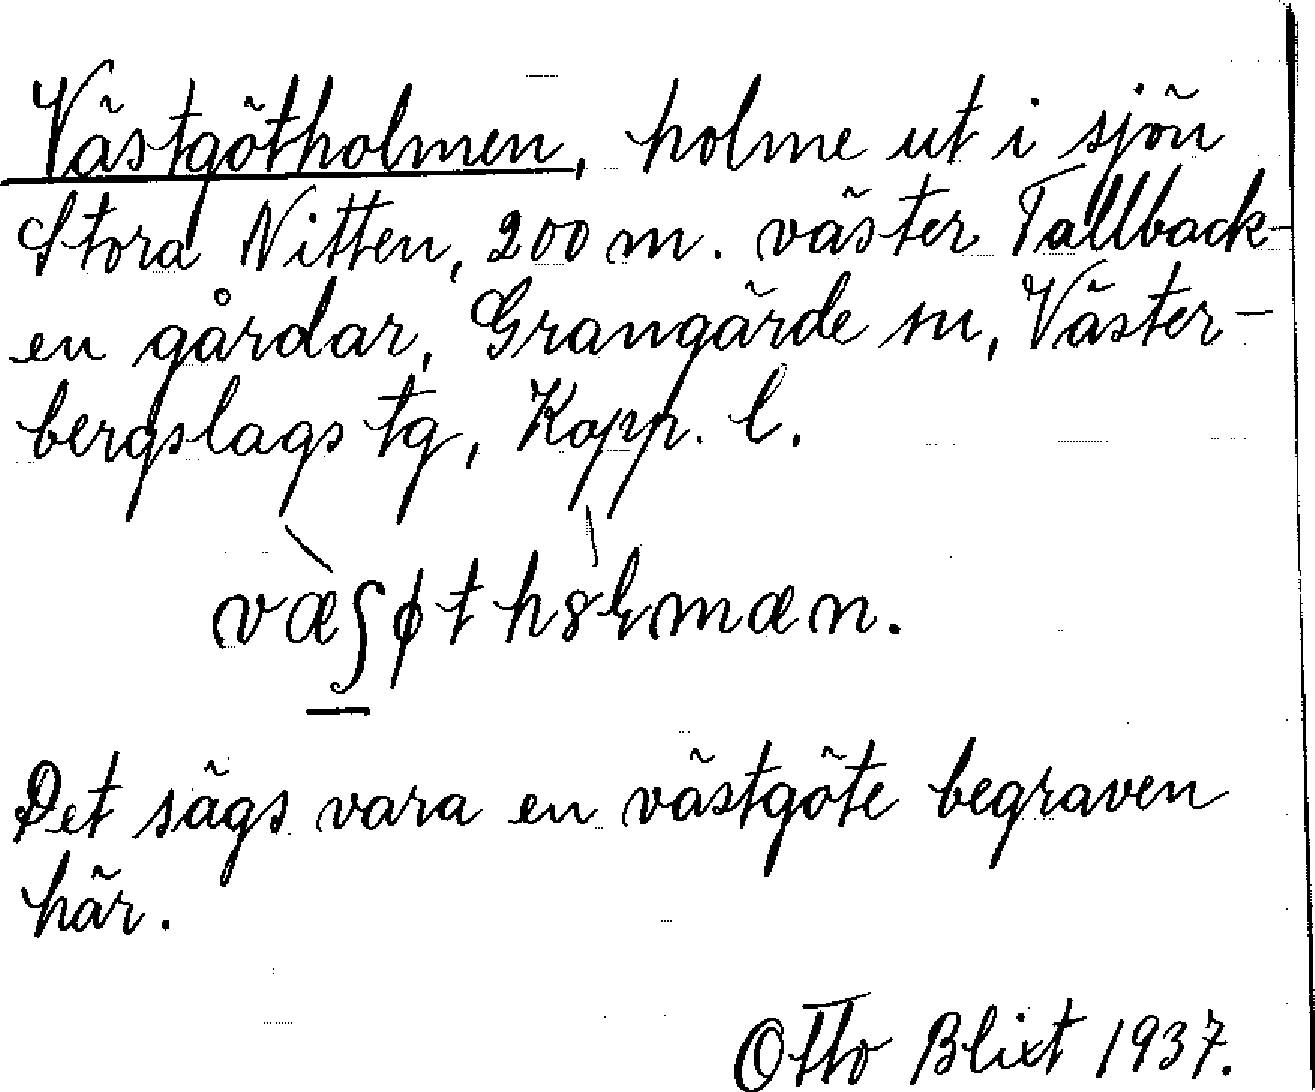 Västgötholmen, holme ut i sjön
Stora Nitten, 200 m. väster Tallback-
en gårdar, Grangärde sn, Väster-
bergslags tg, Kopp. l.
Det sägs vara en västgöte begraven
här.
Otto Blixt 1937.